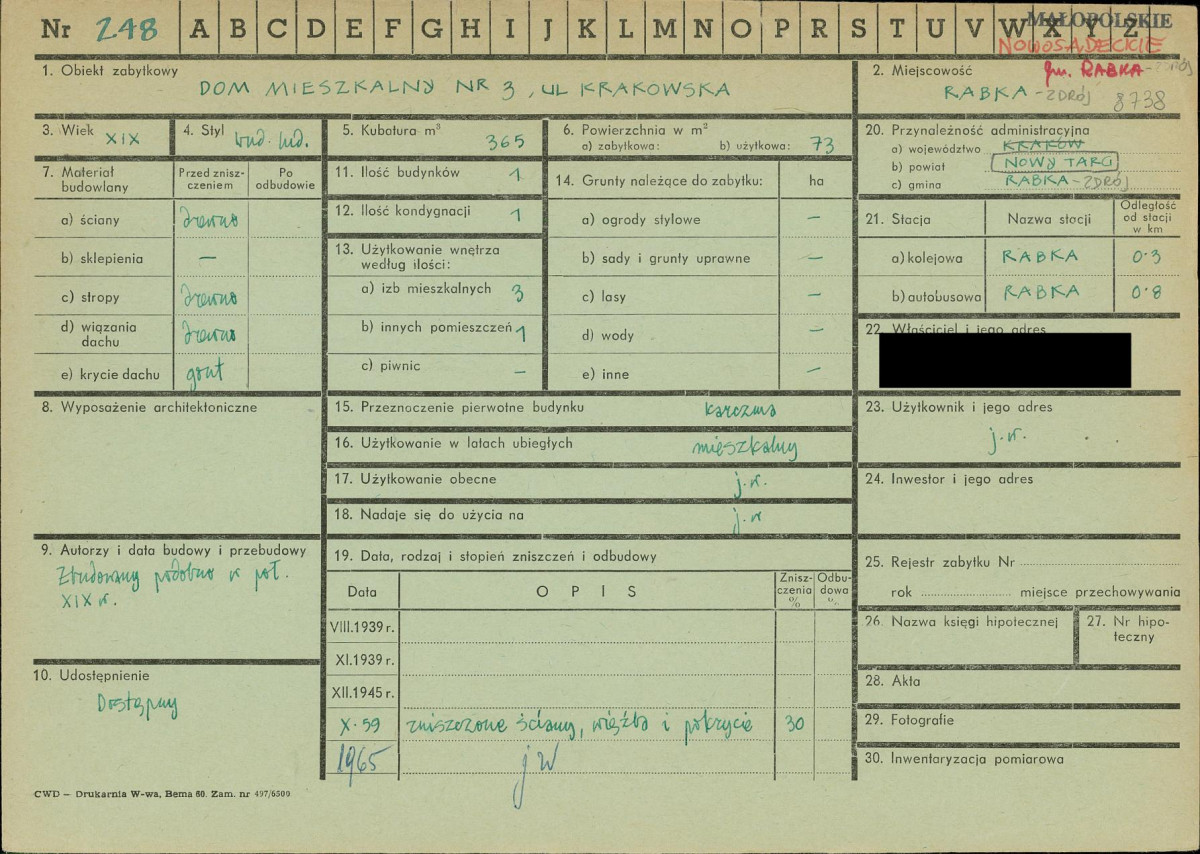 Nr 248 A B C D E F G H I J K L M N O P R S T U V W X Y Z
MAŁOPOLSKIE
NOWOSĄDECKIE
1. Obiekt zabytkowy
DOM MIESZKALNY NR 3, UL KRAKOWSKA
2. Miejscowość
gm. RABKA-ZDRÓJ
RABKA-ZDRÓJ 8738
3. Wiek
XIX
4. Styl
bud. lud.
5. Kubatura m³
365
6. Powierzchnia w m²
a) zabytkowa: b) użytkowa: 73
7. Materiał budowlany
Przed zniszczeniem
Po odbudowie
a) ściany drewno
b) sklepienia —
c) stropy drewno
d) wiązania dachu drewno
e) krycie dachu gont
8. Wyposażenie architektoniczne
9. Autorzy i data budowy i przebudowy
Zbudowany podobno w poł.
XIX w.
10. Udostępnienie
Dostępny
11. Ilość budynków 1
12. Ilość kondygnacji 1
13. Użytkowanie wnętrza
według ilości:
a) izb mieszkalnych 3
b) innych pomieszczeń 1
c) piwnic —
14. Grunty należące do zabytku: ha
a) ogrody stylowe —
b) sady i grunty uprawne —
c) lasy —
d) wody —
e) inne —
15. Przeznaczenie pierwotne budynku karczma
16. Użytkowanie w latach ubiegłych mieszkalny
17. Użytkowanie obecne j.w.
18. Nadaje się do użycia na j.w
19. Data, rodzaj i stopień zniszczeń i odbudowy
Data OPIS Zniszczenia % Odbudowa %
VIII.1939 r.
XI.1939 r.
XII.1945 r.
X-59 zniszczone ściany, więźba i pokrycie 30
1965 jw
20. Przynależność administracyjna
a) województwo KRAKÓW
b) powiat NOWY TARG
c) gmina RABKA-ZDRÓJ
21. Stacja Nazwa stacji Odległość od stacji w km
a) kolejowa RABKA 0.3
b) autobusowa RABKA 0.8
22. Właściciel i jego adres
23. Użytkownik i jego adres
j.w.
24. Inwestor i jego adres
25. Rejestr zabytku Nr
rok miejsce przechowywania
26. Nazwa księgi hipotecznej
27. Nr hipoteczny
28. Akta
29. Fotografie
30. Inwentaryzacja pomiarowa
CWD — Drukarnia W-wa, Bema 60. Zam. nr 497/6500